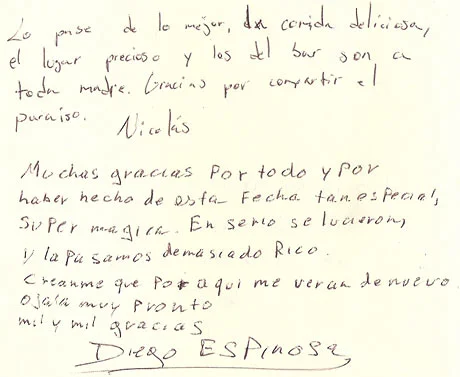 Lo pase de lo mejor, la comida deliciosa,
el lugar precioso y los del bar son a
toda madre. Gracias por compartir el
paraíso.
Nicolás
Muchas gracias Por todo y por
haber hecho de esta Fecha tan especial,
super magica. En serio se lucieron,
y la pasamos demasiado Rico.
Creanme que Por aqui me veran de nuevo.
ojala muy pronto
mil y mil gracias
Diego Espinosa